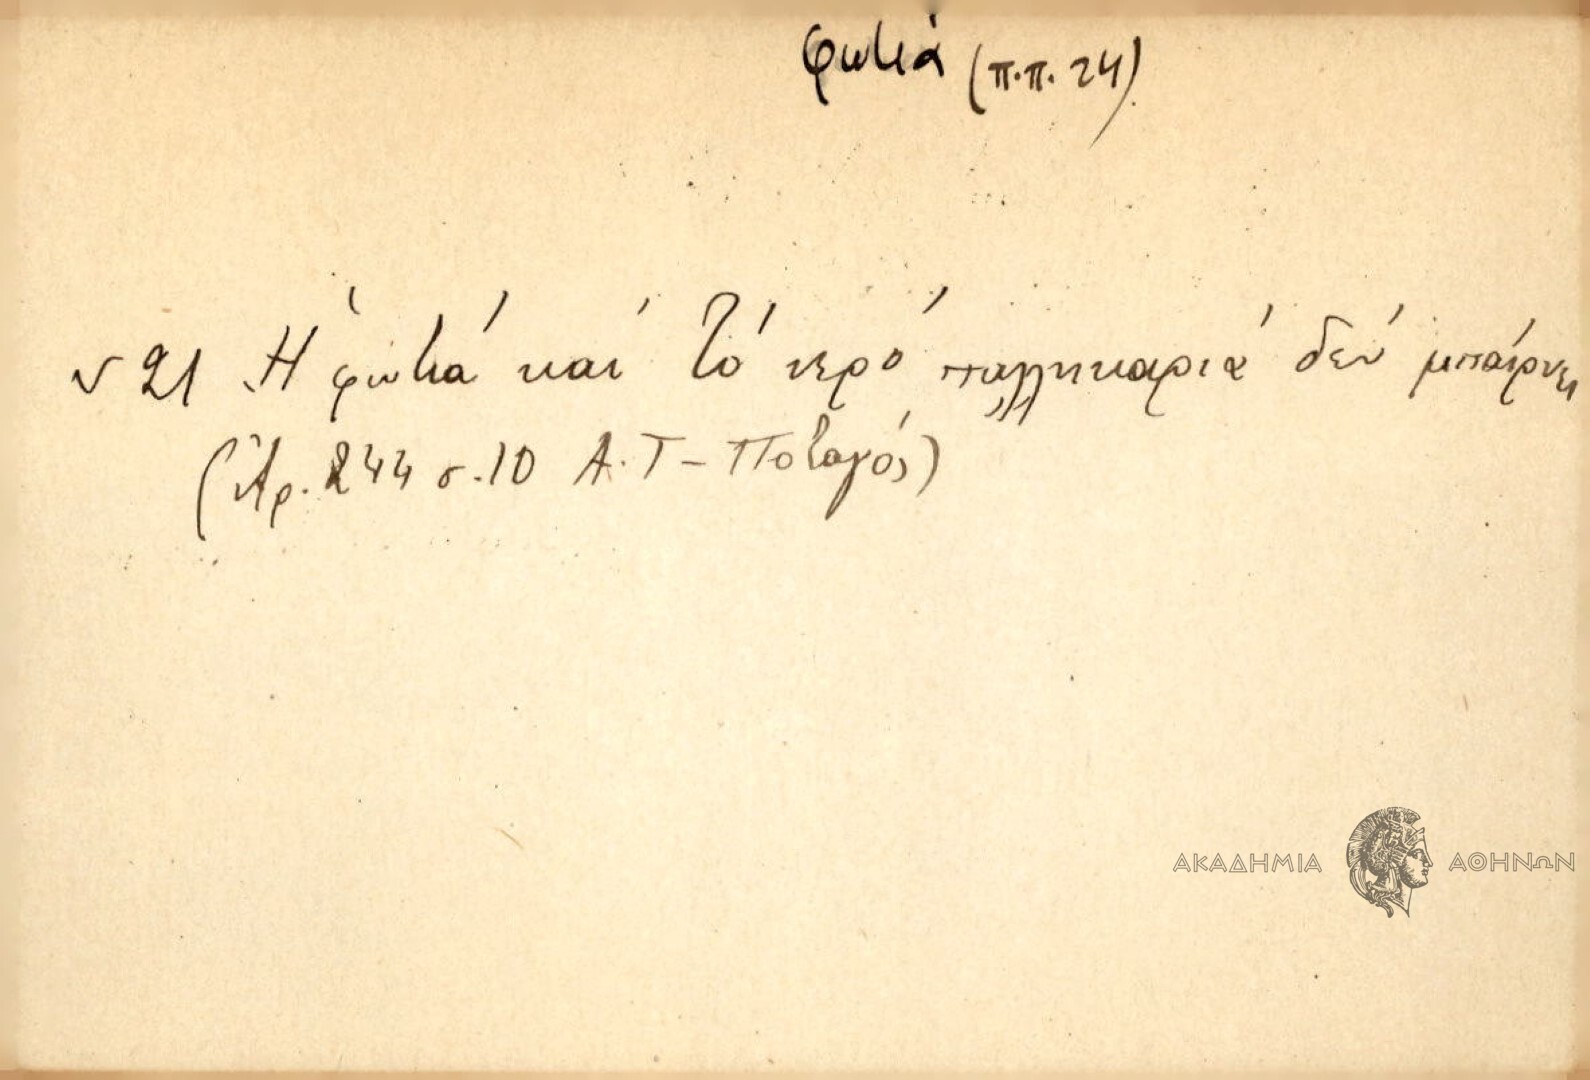 φωτιά (π.π. 24)
ν 21 Ἡ φωτιά καί τό νερό παλληκαριά δέν μπαίρνει
(Ἀρ. 244 σ. 10 Α.Τ - Ποταγός)
ΑΚΑΔΗΜΙΑ ΑΘΗΝΩΝ